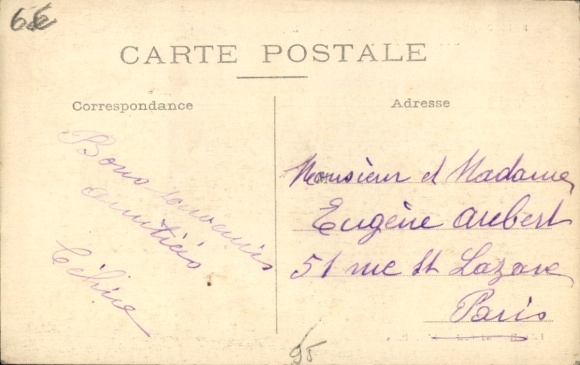 6€
CARTE POSTALE
Correspondance
Adresse
Bons souvenirs
amitiés
Céline
Monsieur et Madame
Eugène Arebert
51 rue St Lazare
Paris
95